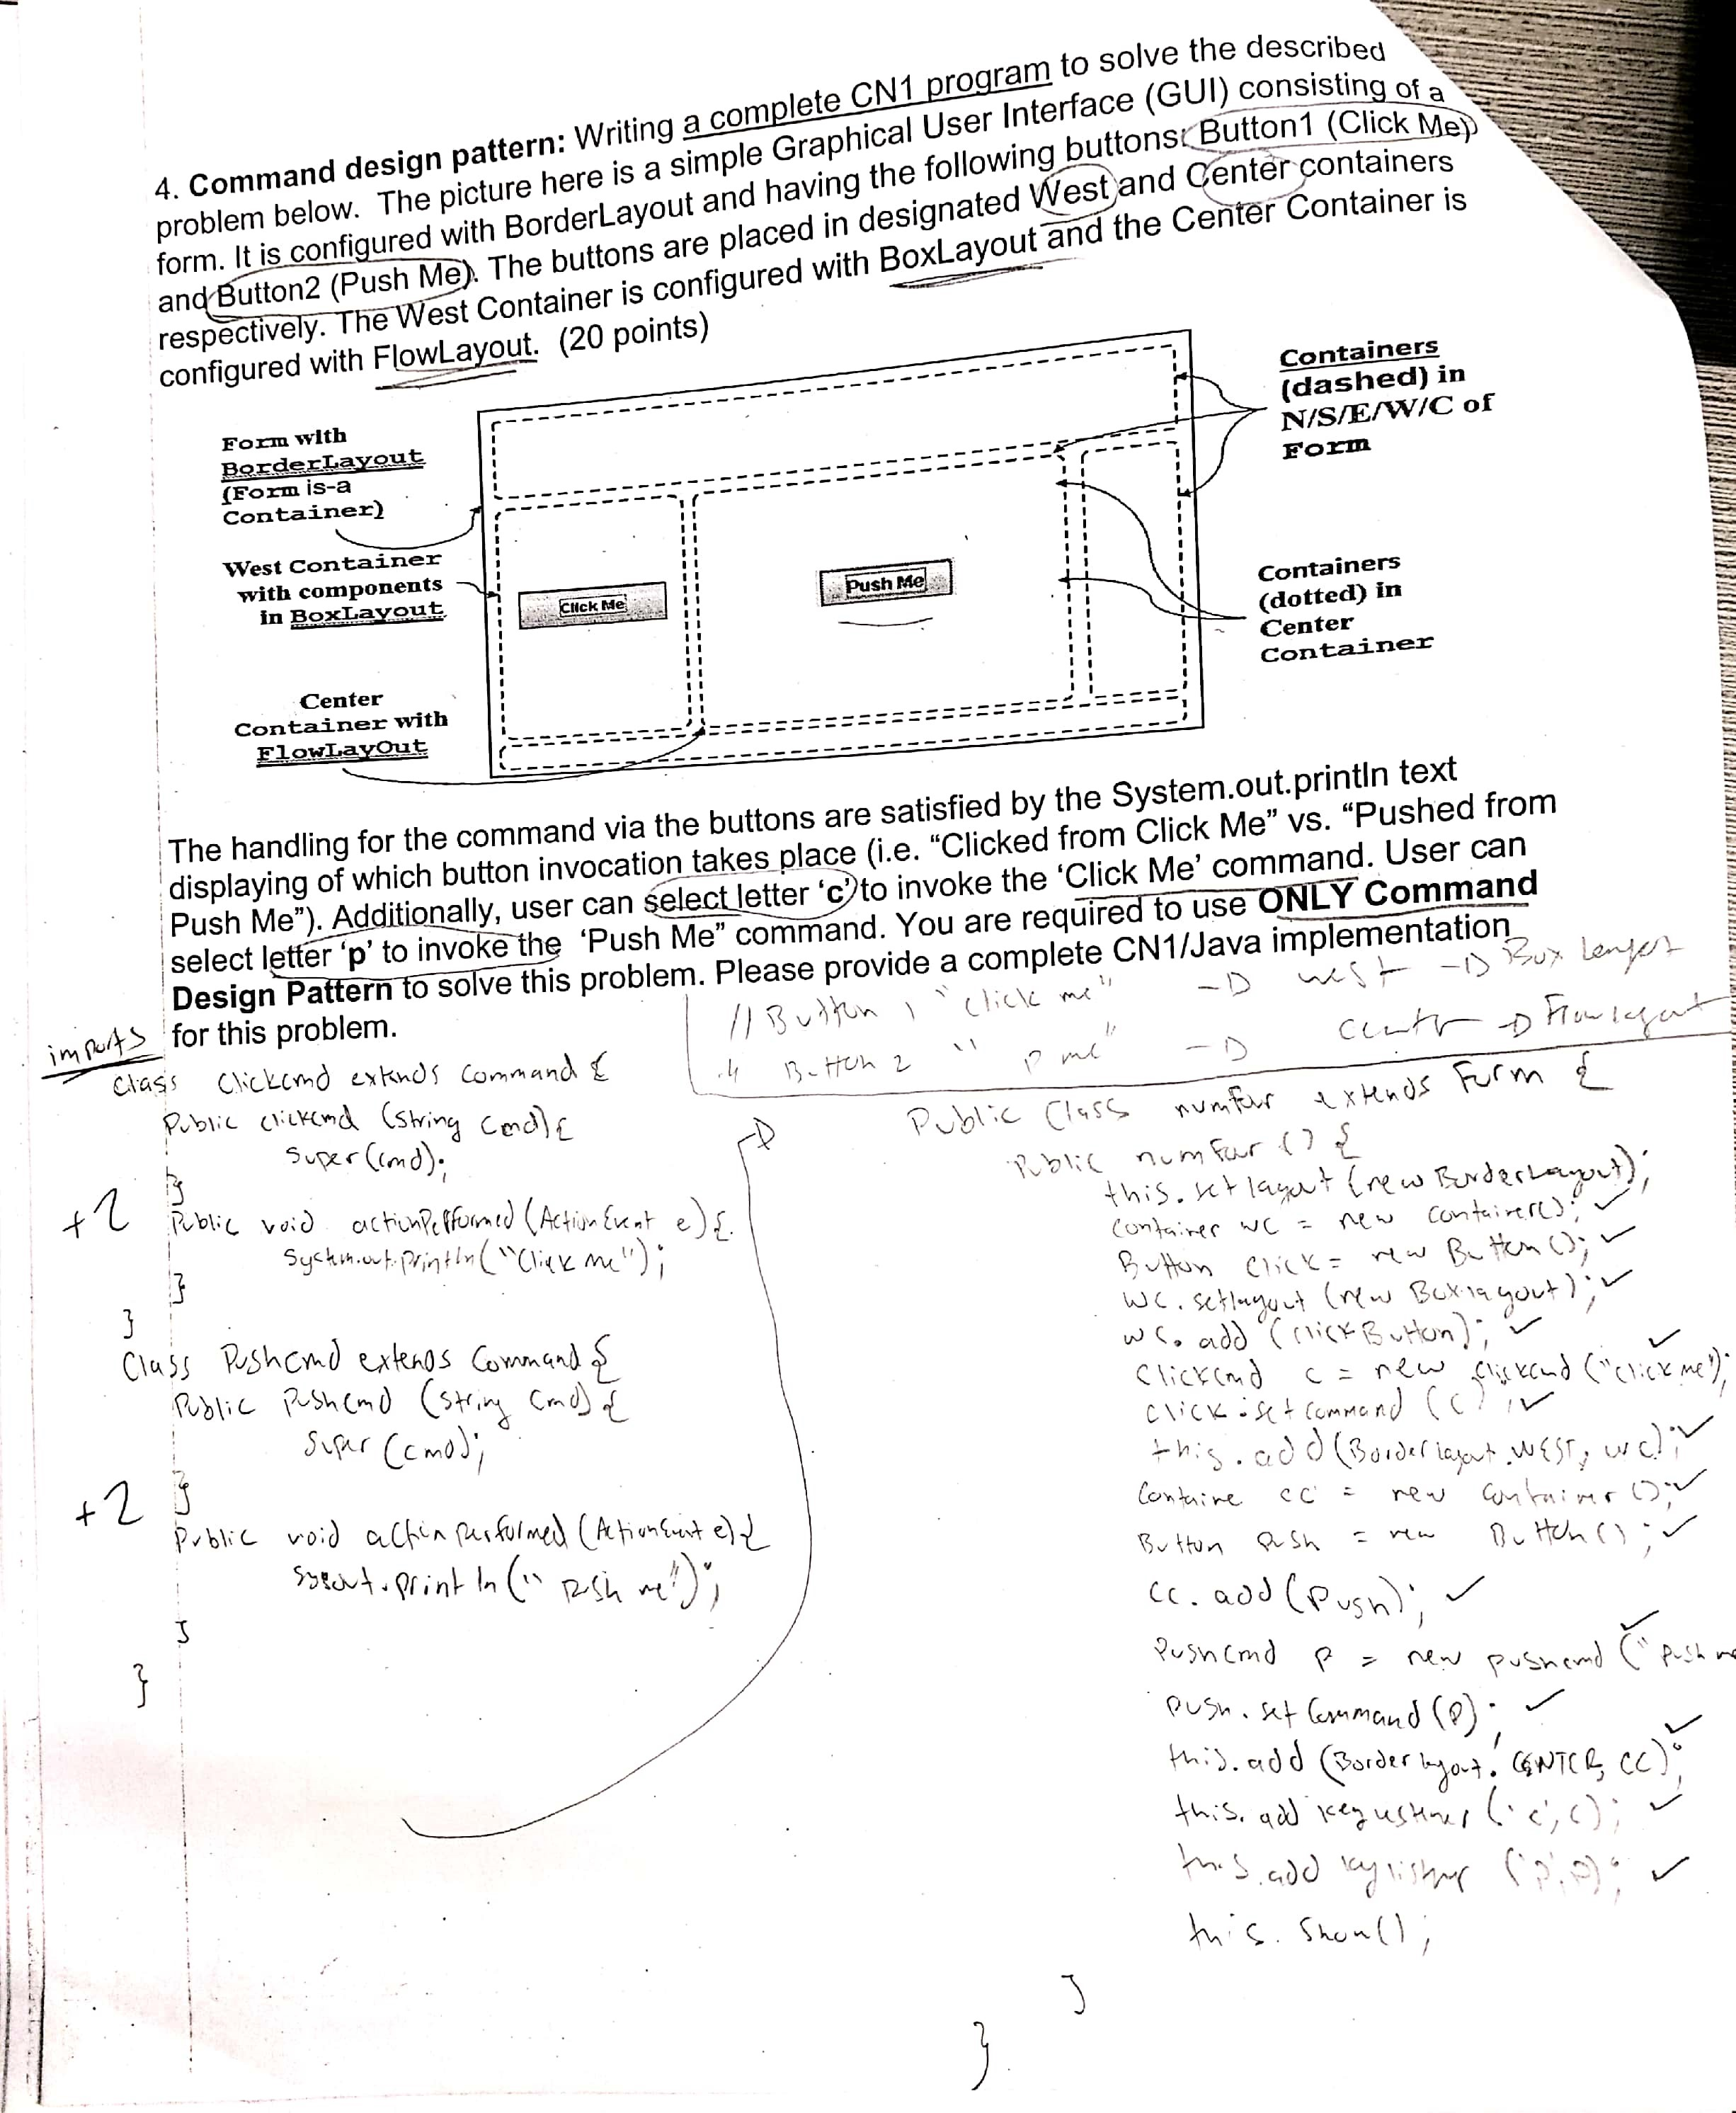 4. Command design pattern: Writing a complete CN1 program to solve the described
problem below. The picture here is a simple Graphical User Interface (GUI) consisting of a
form. It is configured with BorderLayout and having the following buttons: Button1 (Click Me)
and Button2 (Push Me). The buttons are placed in designated West and Center containers
respectively. The West Container is configured with BoxLayout and the Center Container is
configured with FlowLayout. (20 points)
Form with
BorderLayout
(Form is-a
Container)
West Container
with components
in BoxLayout
Center
Container with
FlowLayOut
Click Me
Push Me
Containers
(dashed) in
N/S/E/W/C of
Form
Containers
(dotted) in
Center
Container
The handling for the command via the buttons are satisfied by the System.out.println text
displaying of which button invocation takes place (i.e. “Clicked from Click Me” vs. “Pushed from
Push Me”). Additionally, user can select letter ‘c’ to invoke the ‘Click Me’ command. User can
select letter ‘p’ to invoke the ‘Push Me” command. You are required to use ONLY Command
Design Pattern to solve this problem. Please provide a complete CN1/Java implementation
for this problem.
// Button 1 "click me" → west → Box
Button 2 " P me" → Center → Flow layout
imports
Class Clickcmd extends Command {
Public clickcmd (String cmd) {
Super(cmd);
}
+2
Public void actionPerformed (ActionEvent e) {
System.out.println("Click me");
}
}
Class Pushcmd extends Command {
Public Pushcmd (String cmd) {
Super (cmd);
}
+2
Public void action performed (ActionEvent e) {
Sysout.println (" Push me");
}
}
Public Class extends Form {
Public () {
this.setlayout (new BorderLayout);
Container wc = new container();
Button Click = new Button ();
wc.setlayout (new Boxlayout);
wc.add (clickButton);
Clickcmd c = new clickcmd ("click me");
click.setcommand (c);
this.add (Borderlayout.WEST, wc);
Containe cc = new container ();
Button push = new Button ();
cc.add (push);
Pushcmd p = new pushcmd ("Push me
push.setCommand (p);
this.add (Borderlayout.CENTER, CC);
this.add keylistener ('c', c);
this.add keylistner ('p', p);
this.show();
}
}